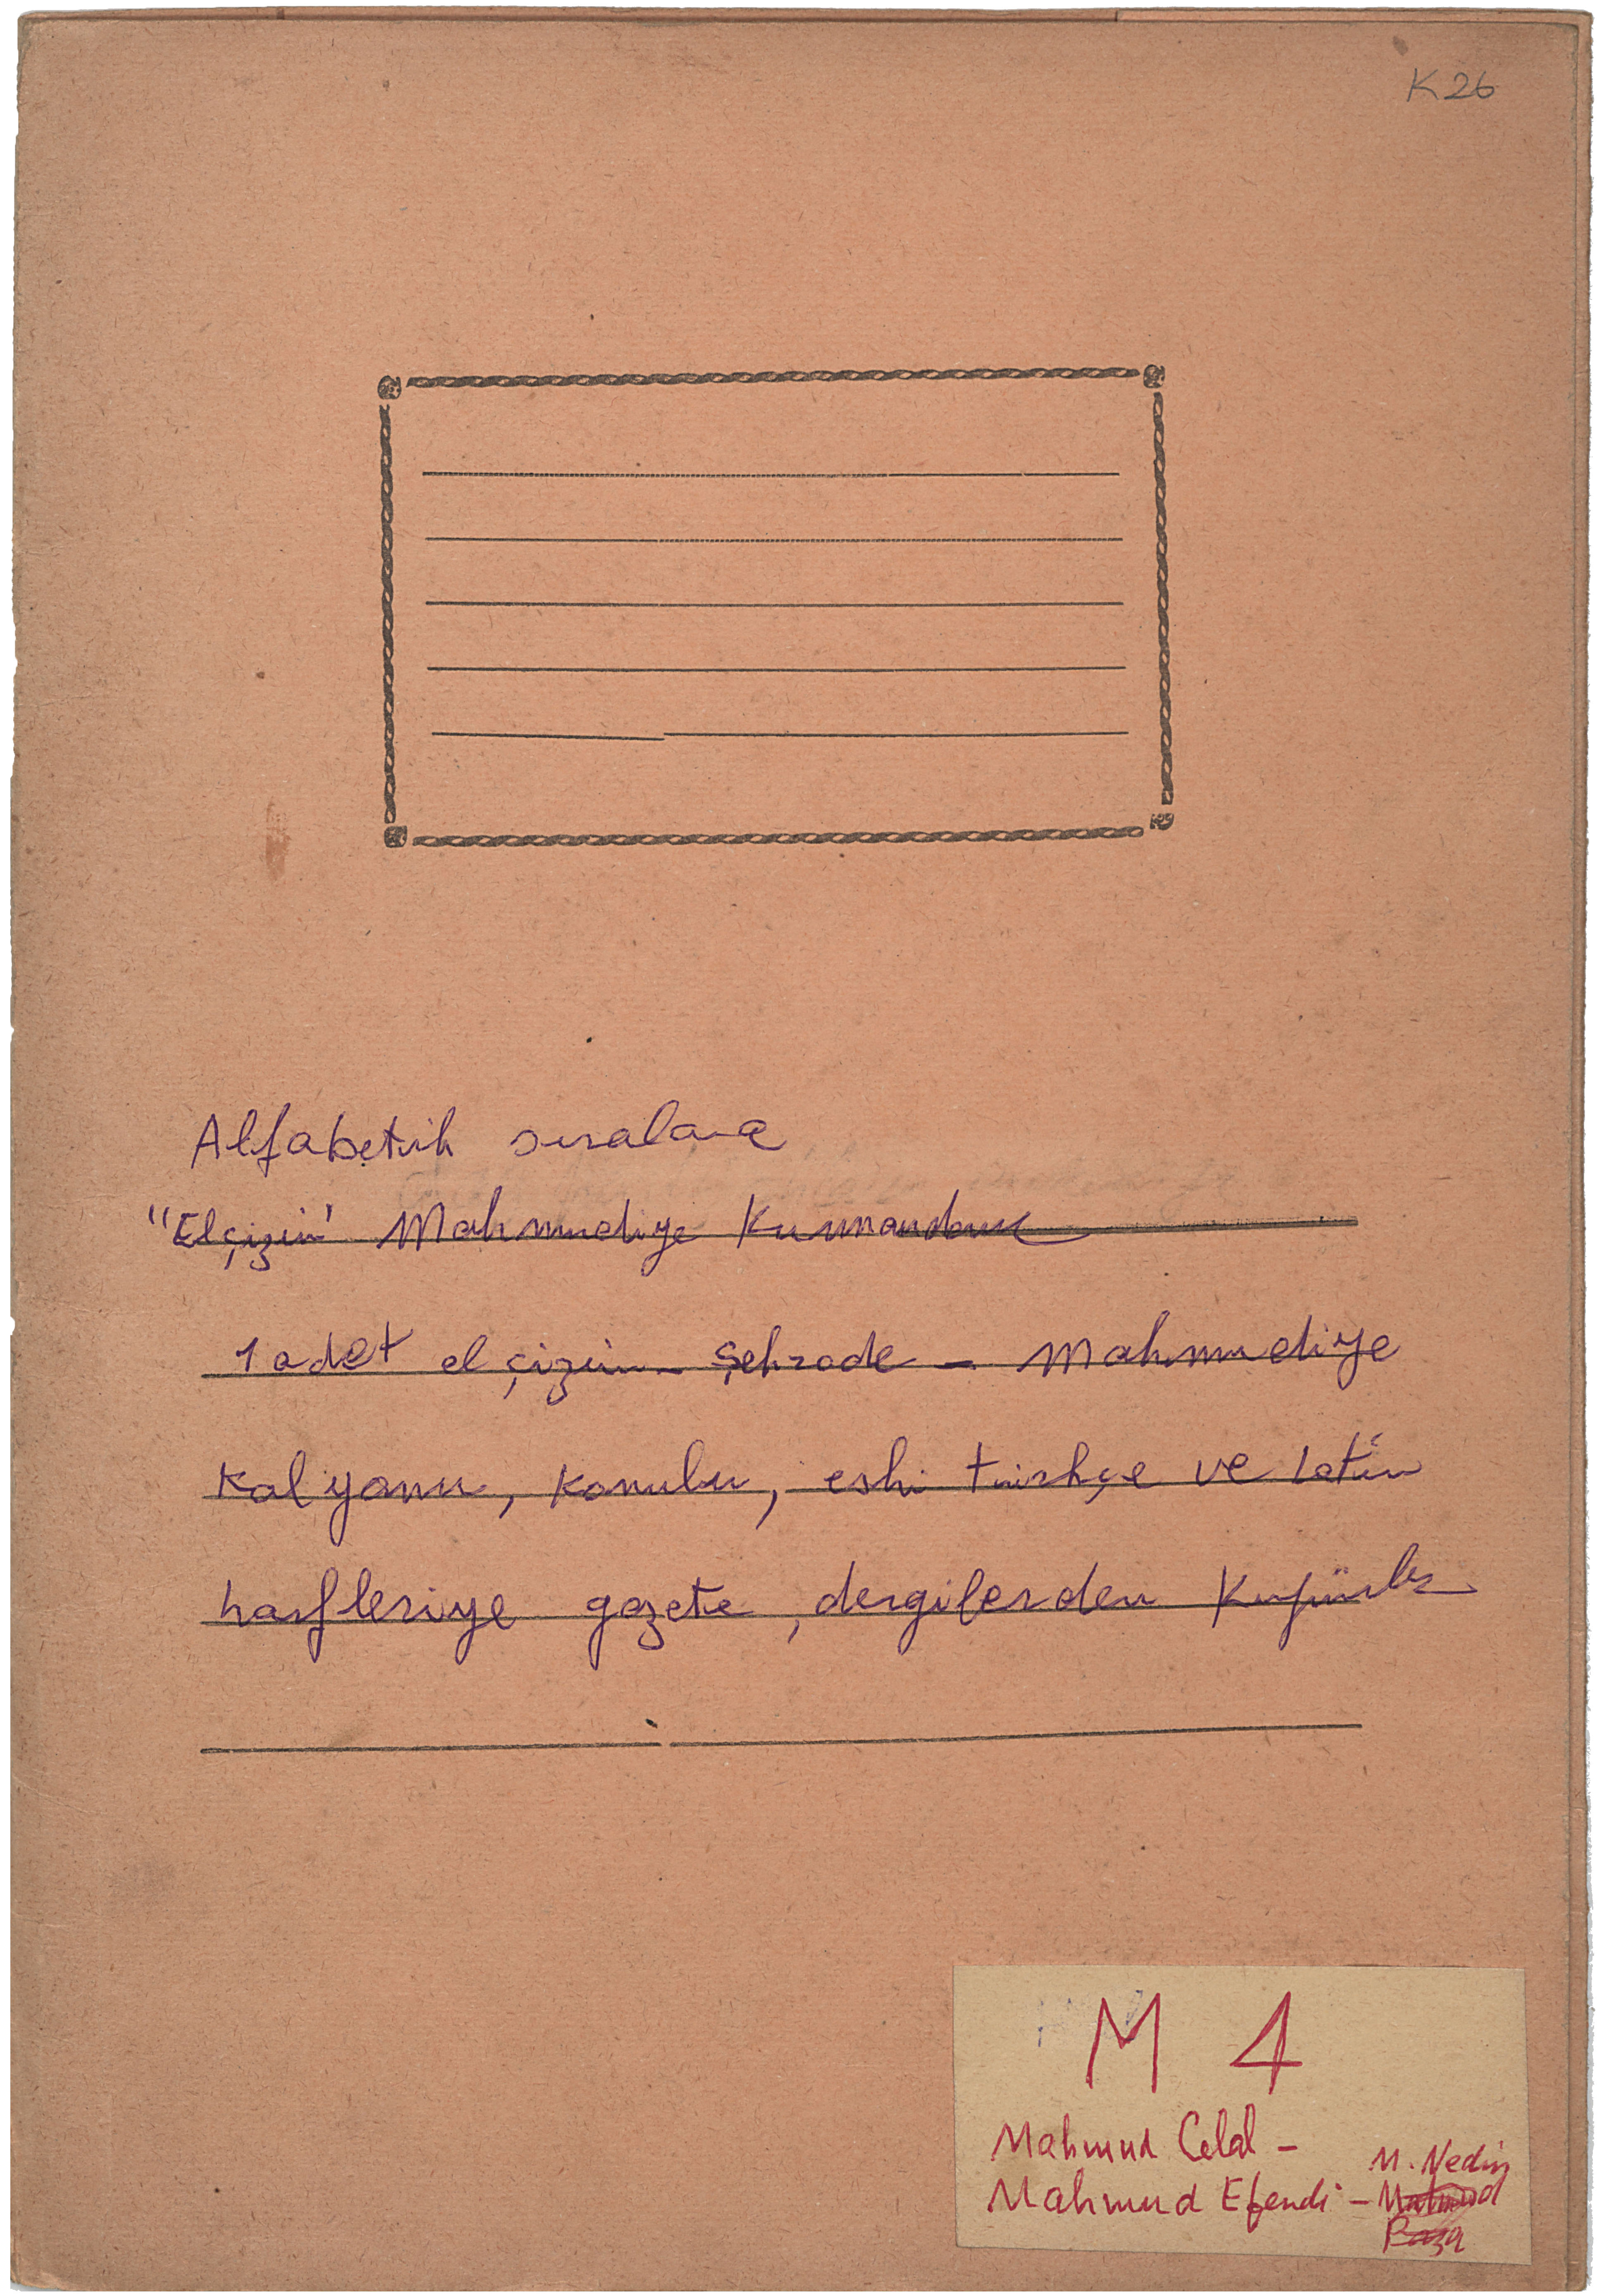 K26
Alfabetik sıralama
"Elçizim" Mahmudiye Kumandanı
1 adet el çizim - Şehzade - Mahmudiye
Kalyonu, konulu, eski türkçe ve latin
harfleriye gazete, dergilerden Kupürler
M 4
Mahmud Celal -
M. Nedim
Mahmud Efendi - Mahmud
Paşa